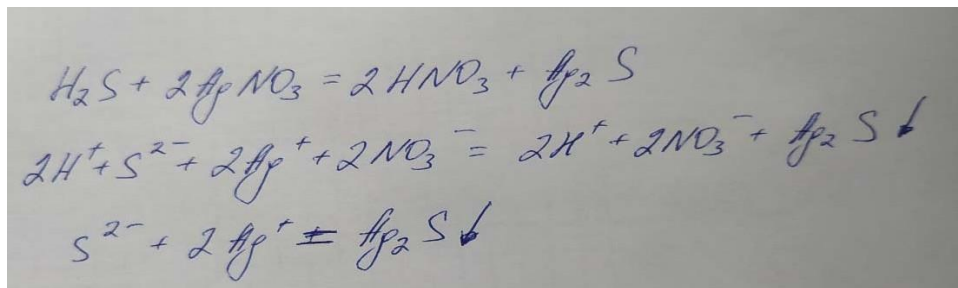 H₂S + 2AgNO₃ = 2HNO₃ + Ag₂S
2H⁺ + S²⁻ + 2Ag⁺ + 2NO₃⁻ = 2H⁺ + 2NO₃⁻ + Ag₂S↓
S²⁻ + 2Ag⁺ = Ag₂S↓